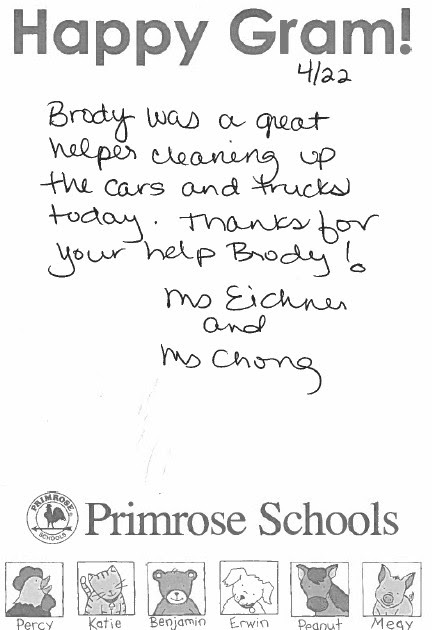 Happy Gram!
4/22
Brody was a great
helper cleaning up
the cars and trucks
today. Thanks for
your help Brody!
Ms Eichner
and
Ms Chong
PRIMROSE
SCHOOLS
Primrose Schools
Percy Katie Benjamin Erwin Peanut Megy